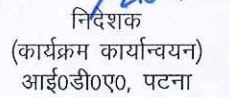 निदेशक
(कार्यक्रम कार्यान्वयन)
आई0डी0ए0, पटना